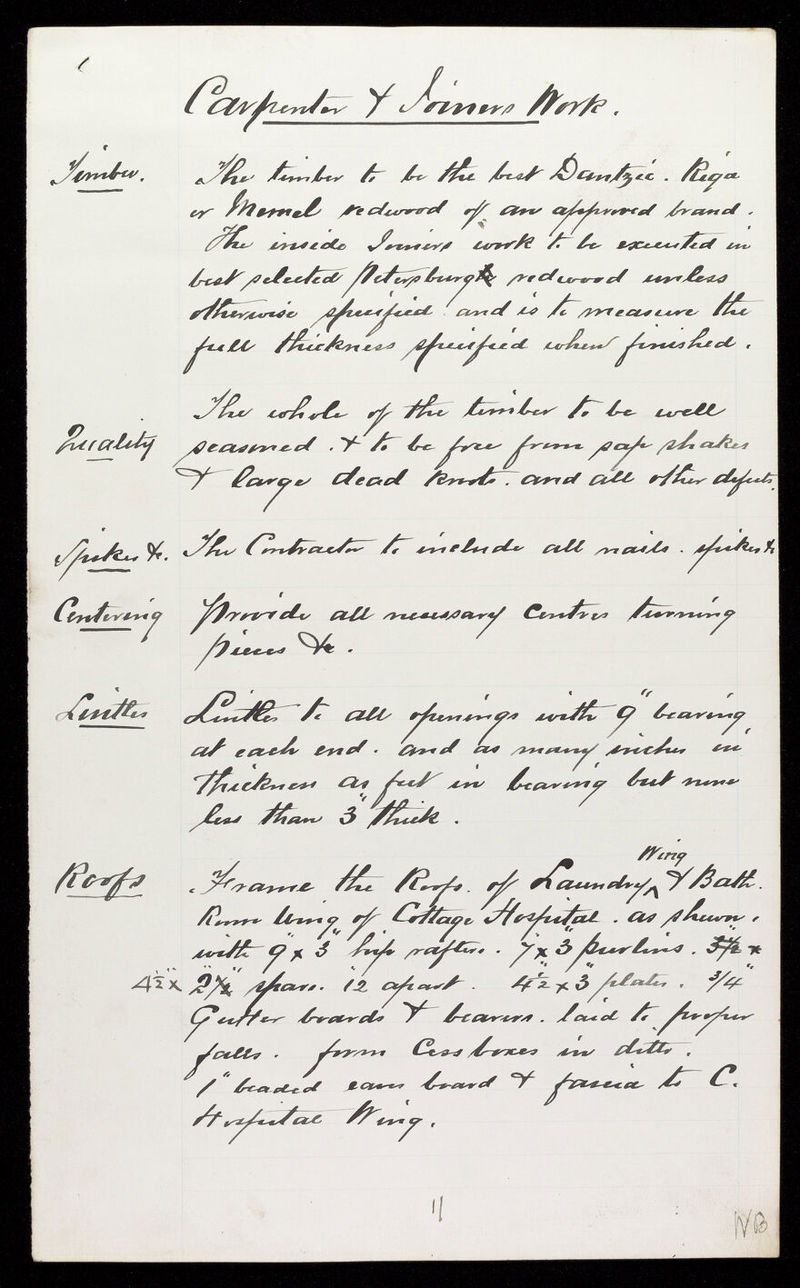 Carpenter & Joiners Work.
Timber. The timber to be the best Dantzic. Riga
or Memel redwood of an approved brand.
The inside Joiners work to be executed in
best selected Petersburg redwood unless
otherwise specified and is to measure the
full thickness specified when finished.
Quality The whole of the timber to be well
seasoned. & to be free from sap shakes
& large dead knots. and all other defects.
Spikes &c. The Contractor to include all nails. spikes &c
Centering Provide all necessary centres turning
pieces &c.
Lintles Lintles to all openings with 9" bearing
at each end. and as many inches in
thickness as feet in bearing but none
less than 3" thick.
Wing
Roofs Frame the Roofs. of Laundry ^ & Bath.
Room Wing of Cottage Hospital. as shewn.
with 9" x 3" hip rafters. 7" x 3" purlins. 3½ x
4½" x 2" spars. 12 apart. 4½" x 3" plates. 3/4"
Gutter boards & bearers. laid to proper
falls. form Cessboxes in ditto.
1" beaded eaves board & fascia to C.
Hospital Wing.
11
NB